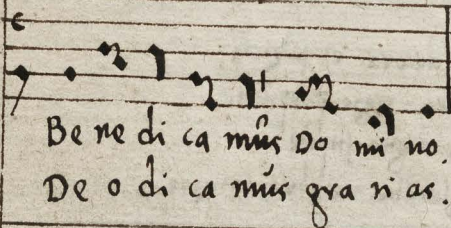 Be ne di ca mûs Do mi no.
De o di ca mús gra ti as.